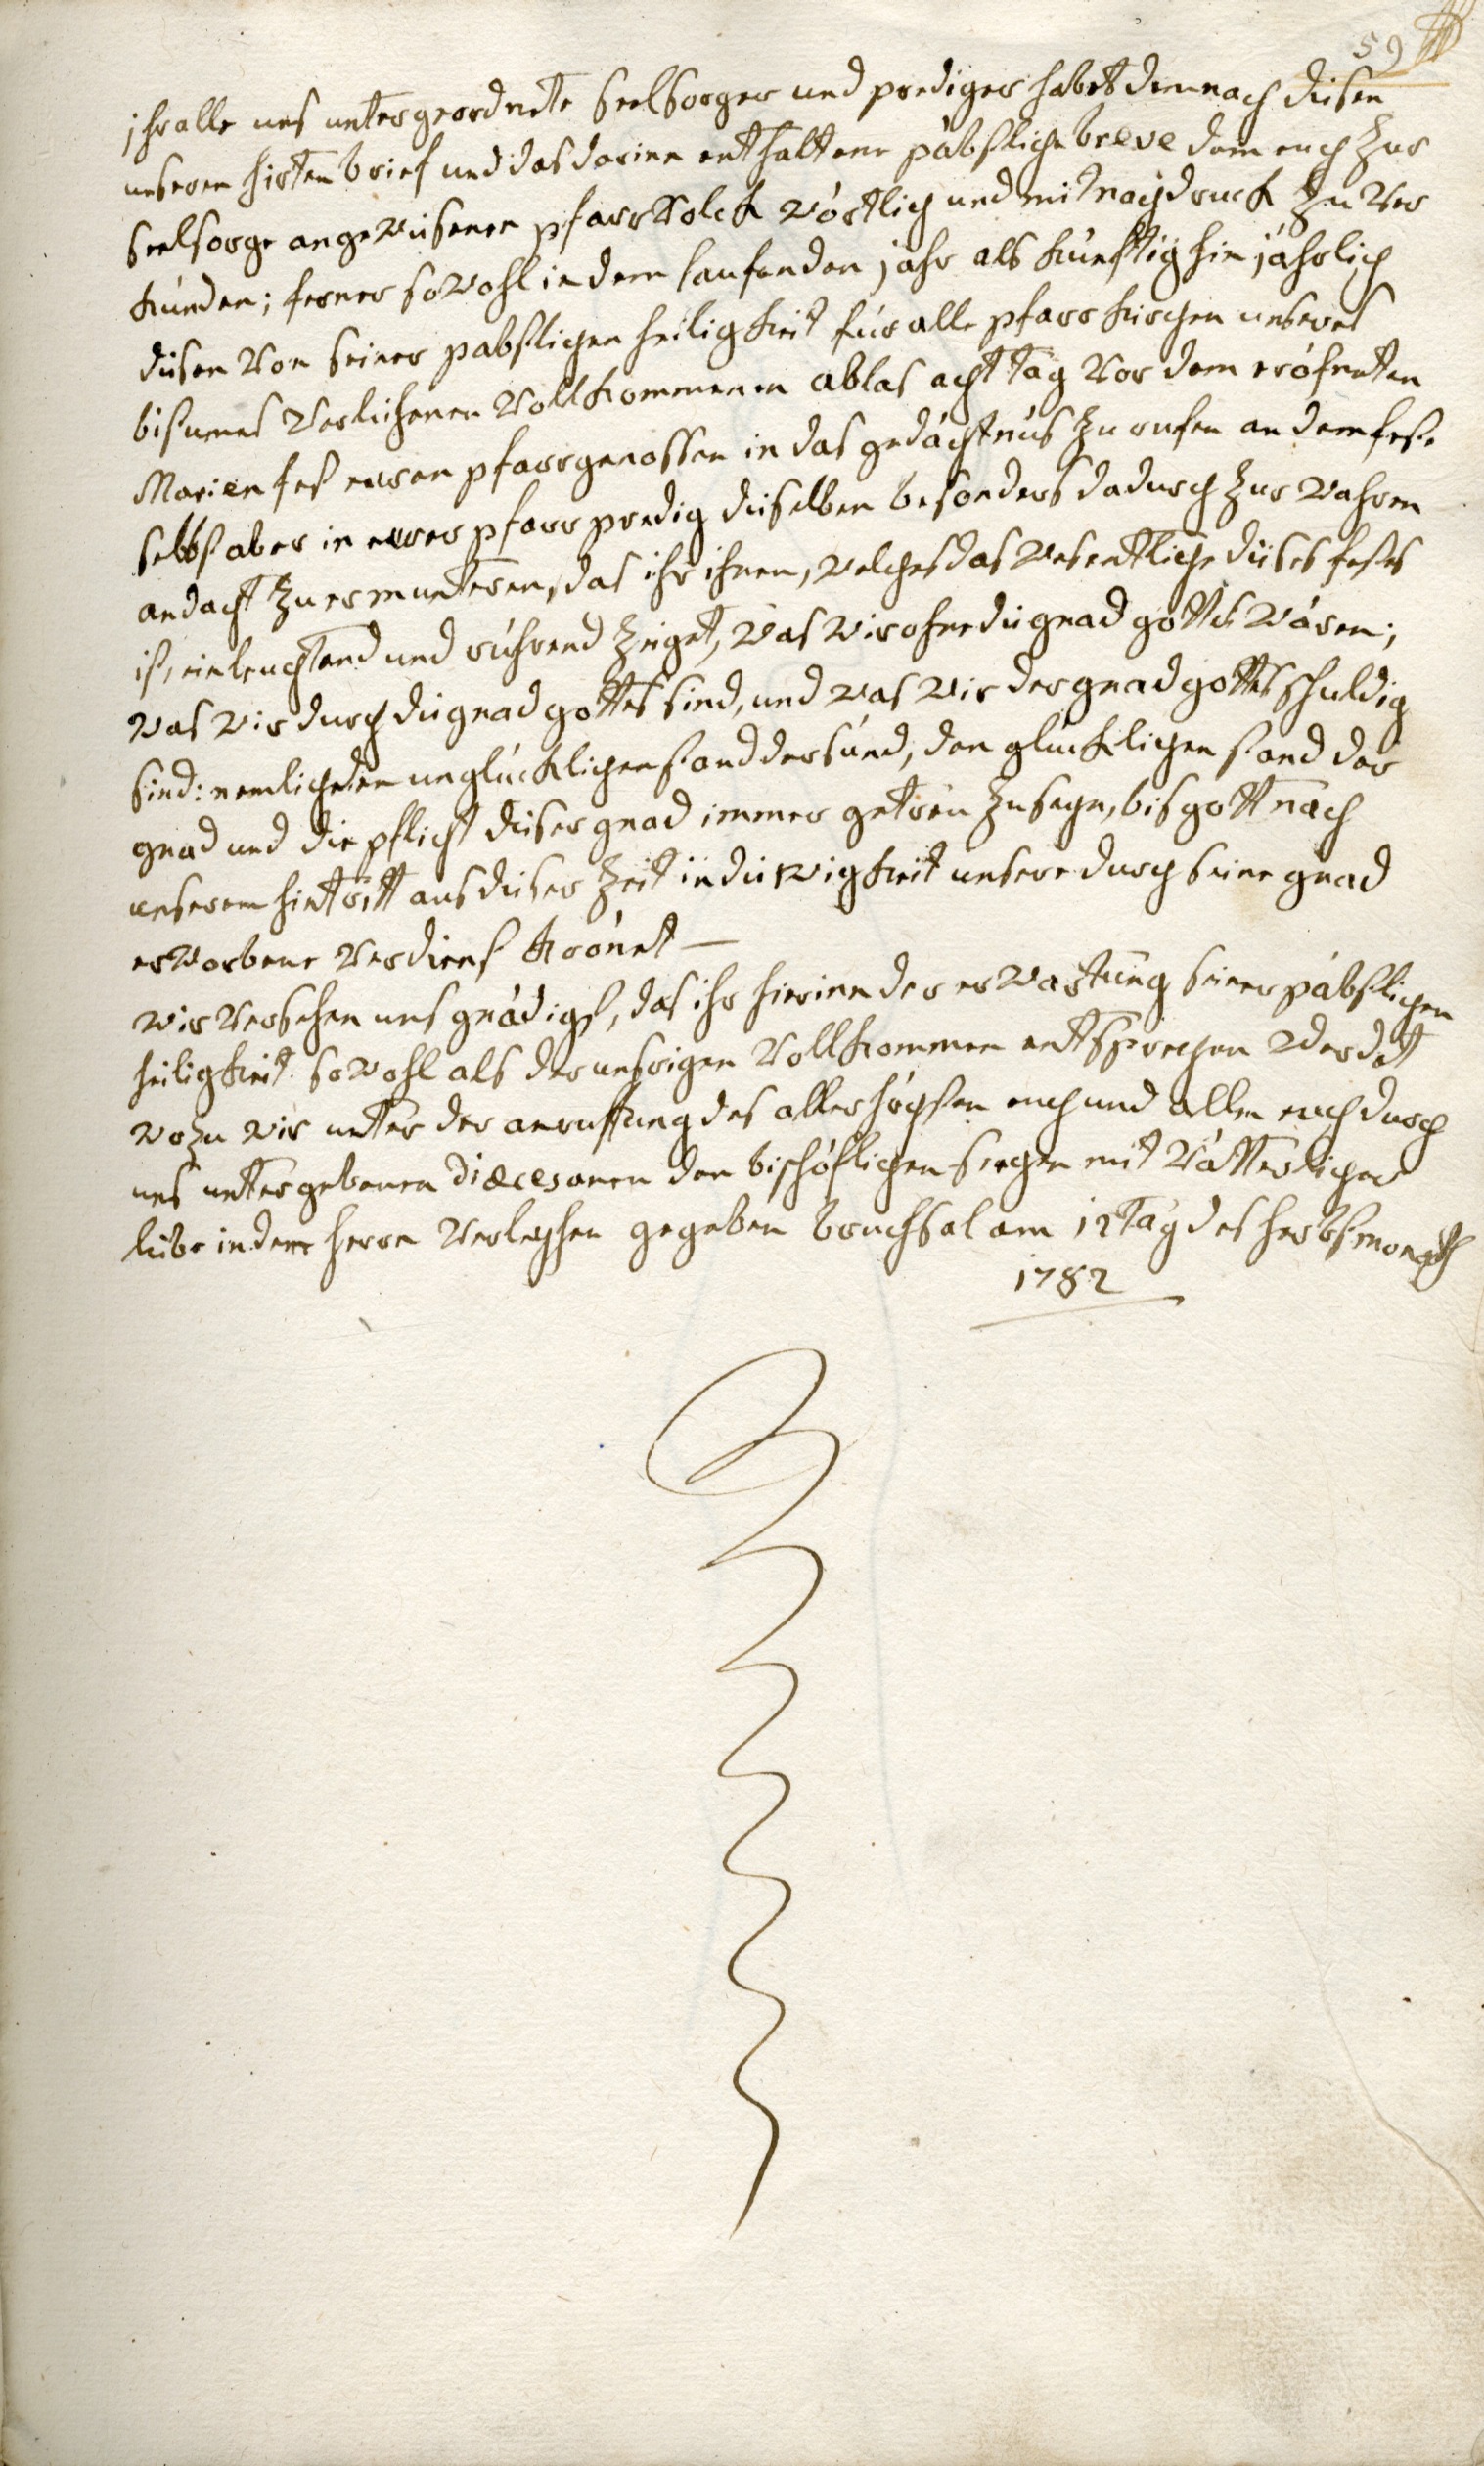 59
jhr alle uns untergeordnete seelsorger und prediger habet demnach diesen
unseren hirtenbrief und das darinn enthaltene päbstliche breve dem euch zur
seelsorge angewiesenen pfarrvolck wörtlich und mit nachdruck zu ver
künden; ferner sowohl in dem laufenden jahr als künftighin jährlich
diesen von seiner pabstlichen heiligkeit für alle pfarrkirchen unseres
bistumes verliehenen vollkommenen ablas acht tag vor dem eröfneten
Marien fest euren pfarrgenossen in das gedächtnüs zu rufen an dem feste
selbst aber in eurer pfarrpredig dieselben besonders dadurch zur wahren
andacht zu ermunteren, das ihr ihnen, welches das wesentliche dieses festes
ist, einleuchtend und rührend zeiget, was wir ohne die gnad gottes wären;
was wir durch die gnad gottes sind, und was wir der gnad gottes schuldig
sind: nemlich den unglücklichen stand der sünd, den glücklichen stand der
gnad und die pflicht dieser gnad immer getreu zu seyn, bis gott nach
unserem hintritt aus dieser zeit in die ewigkeit unsere durch seine gnad
erworbene verdienst krönet —
wir versehen uns gnädigst, das ihr hierinn der erwartung seiner päbstlichen
heiligkeit sowohl als der unsrigen vollkommen entsprechen werdet
wozu wir unter der anruffung des allerhöchsten euch und allen euch durch
uns untergebenen diœcesanen den bischöflichen seegen mit vätterlicher
liebe in dem herrn verleyhen gegeben bruchsal am 12 tag des herbstmonats
1782